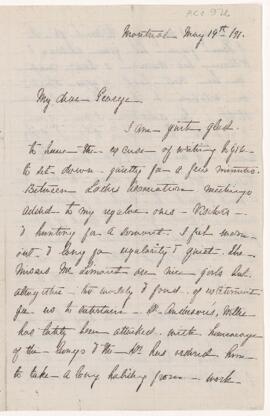 Montreal May 19th /91.
My dear George
I am just glad
to have the excuse of writing to you
to set down quietly for a few minutes.
Between Ladies Association meetings
added to my regular ones - Visitors -
& hunting for a servant I feel worn
out. I long for regularity & quiet. The
Misses are nice girls but
altogether too worldly & fond of excitement
for us to entertain. Dr Anderson's, Willie
has lately been attacked with hemorrhage
of the lungs & the Dr has ordered him
to take a long holiday from work